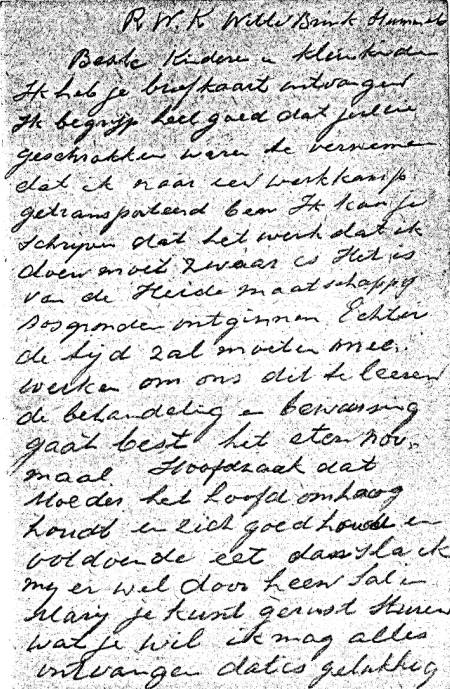 R. W. K Witte Brink Hummelo
Beste Kindere en kleinkinderen
Ik heb je briefkaart ontvangen
Ik begrijp heel goed dat jullie
geschrokken waren te vernemen
dat ik naar een werkkamp
getransporteerd ben Ik kan je
schrijven dat het werk dat ik
doen moet zwaar is Het is
van de Heide maatschappy
bosgronden ontginnen Echter
de tijd zal moeten mee
werken om ons dit te leeren
de behandeling en bewassing
gaat best het eten nor
maal Hoofdzaak dat
Moeder het hoofd omhoog
houdt en zich goed houdt en
voldoende eet dan sla ik
my er wel door heen Sal en
Mary je kunt gerust sturen
wat je wil ik mag alles
ontvangen dat is gelukkig